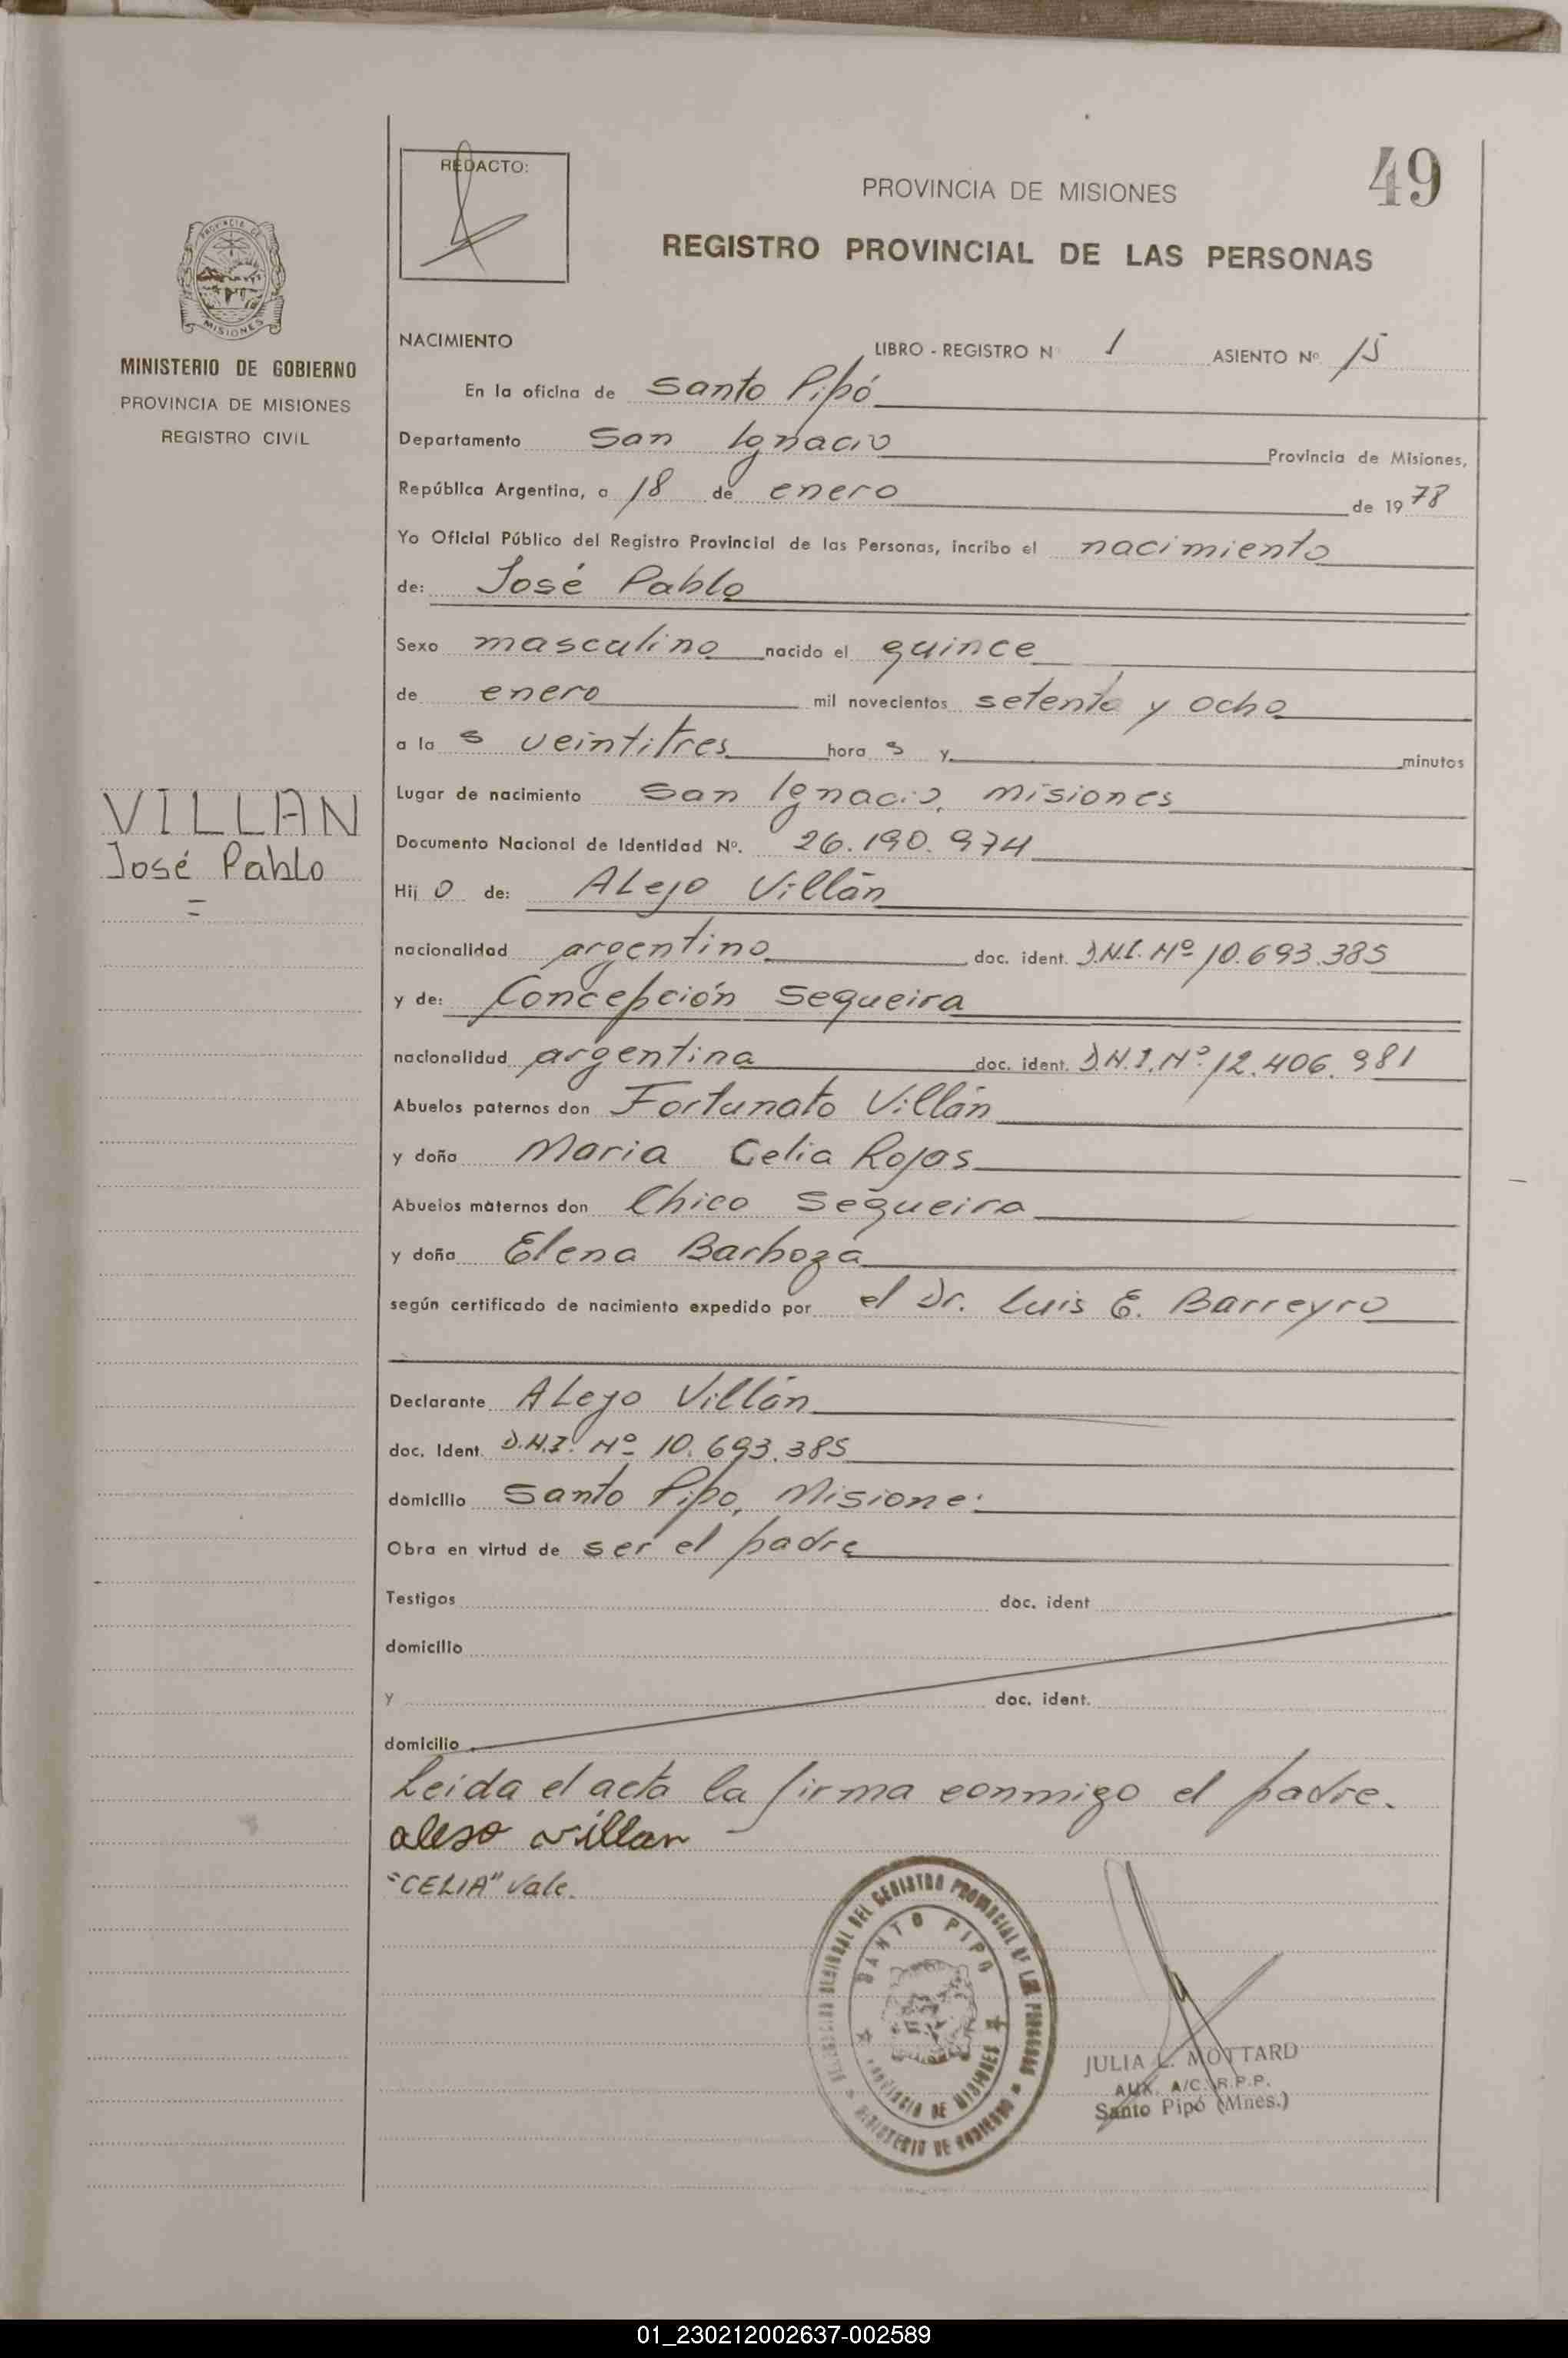 REDACTO:
49
PROVINCIA DE MISIONES
REGISTRO PROVINCIAL DE LAS PERSONAS
PROVINCIA DE
MISIONES
MINISTERIO DE GOBIERNO
PROVINCIA DE MISIONES
REGISTRO CIVIL
NACIMIENTO LIBRO - REGISTRO N° 1 ASIENTO N° 15
En la oficina de Santo Pipó
Departamento San Ignacio Provincia de Misiones,
República Argentina, a 18 de enero de 1978
Yo Oficial Público del Registro Provincial de las Personas, incribo el nacimiento
de: José Pablo
Sexo masculino nacido el quince
de enero mil novecientos setenta y ocho
a la s veintitres hora s y minutos
Lugar de nacimiento San Ignacio, Misiones
Documento Nacional de Identidad N°. 26.190.974
Hij o de: Alejo Villán
nacionalidad argentino doc. ident. D.N.I. Nº 10.693.385
y de: Concepción Sequeira
nacionalidad argentina doc. ident. D.N.I. Nº 12.406.981
Abuelos paternos don Fortunato Villán
y doña Maria Celia Rojas
Abuelos maternos don Chico Sequeira
y doña Elena Barboza
según certificado de nacimiento expedido por el Dr. Luis E. Barreyro
VILLAN
José Pablo
=
Declarante Alejo Villán
doc. Ident. D.N.I. Nº 10.693.385
domicilio Santo Pipo, Misiones
Obra en virtud de ser el padre
Testigos doc. ident
domicilio
y doc. ident.
domicilio
Leida el acta la firma conmigo el padre.
alejo villan
"CELIA" Vale.
REGISTRO PROVINCIAL DE LAS PERSONAS
SANTO PIPO
PROVINCIA DE MISIONES
MINISTERIO DE GOBIERNO
JULIA L. MOTTARD
AUX. A/C. R.P.P.
Santo Pipó (Mnes.)
01_230212002637-002589